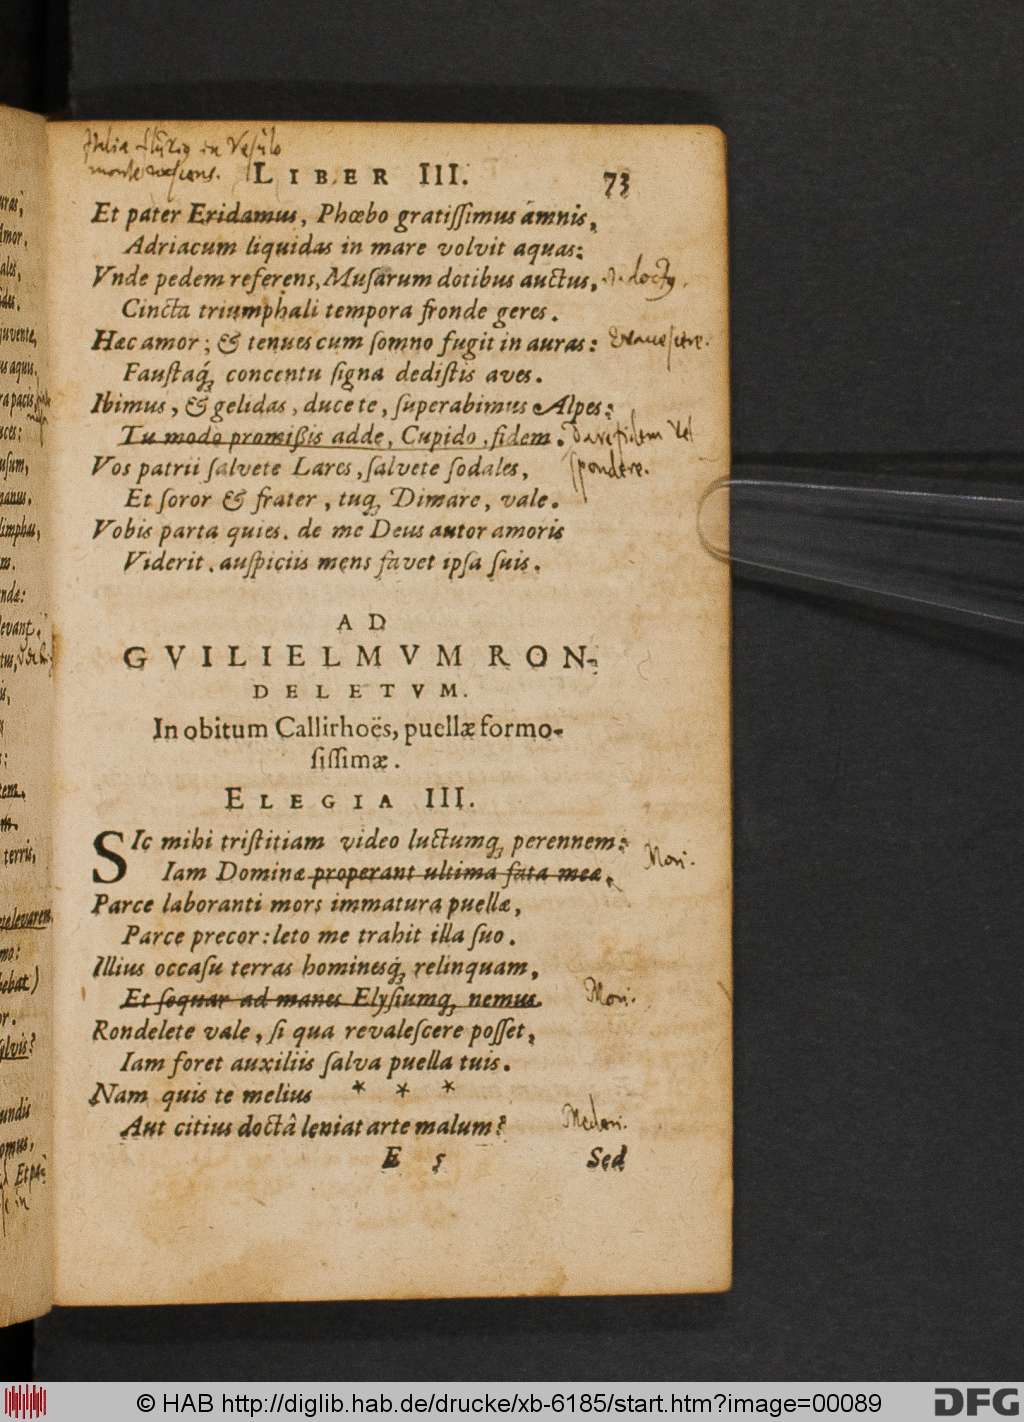 Italia in Vesulo
monte nascens.
LIBER III. 73
Et pater Eridamus, Phœbo gratiſſimus ámnis,
Adriacum liquidas in mare volvit aquas:
Vnde pedem referens, Muſarum dotibus auctus,
docty.
Cincta triumphali tempora fronde geres.
Hæc amor; & tenues cum ſomno fugit in auras:
Evanescere.
Fauſtaq́; concentu ſigna dediſtis aves.
Ibimus, & gelidas, ducete, ſuperabimus Alpes:
Tu modo promiſsis adde, Cupido, fidem.
Dare fidem vel
spondere.
Vos patrii ſalvete Lares, ſalvete ſodales,
Et ſoror & frater, tuq; Dimare, vale.
Vobis parta quies. de me Deus autor amoris
Viderit. auſpiciis mens favet ipſa ſuis.
AD
GVILIELMVM RON-
DELETVM.
In obitum Callirhoës, puellæ formo-
ſiſſimæ.
ELEGIA III.
SIc mihi triſtitiam video luctumq; perennem:
Mori.
Iam Dominæ properant ultima fata meæ.
Parce laboranti mors immatura puellæ,
Parce precor: leto me trahit illa ſuo.
Illius occaſu terras hominesq́; relinquam,
Et ſequar ad manes Elyſiumq; nemus.
Mori.
Rondelete vale, ſi qua revaleſcere poſſet,
Iam foret auxiliis ſalva puella tuis.
Nam quis te melius * * *
Aut citius doctâ leniat arte malum?
Mederi.
E 5 Sed
© HAB http://diglib.hab.de/drucke/xb-6185/start.htm?image=00089
DFG